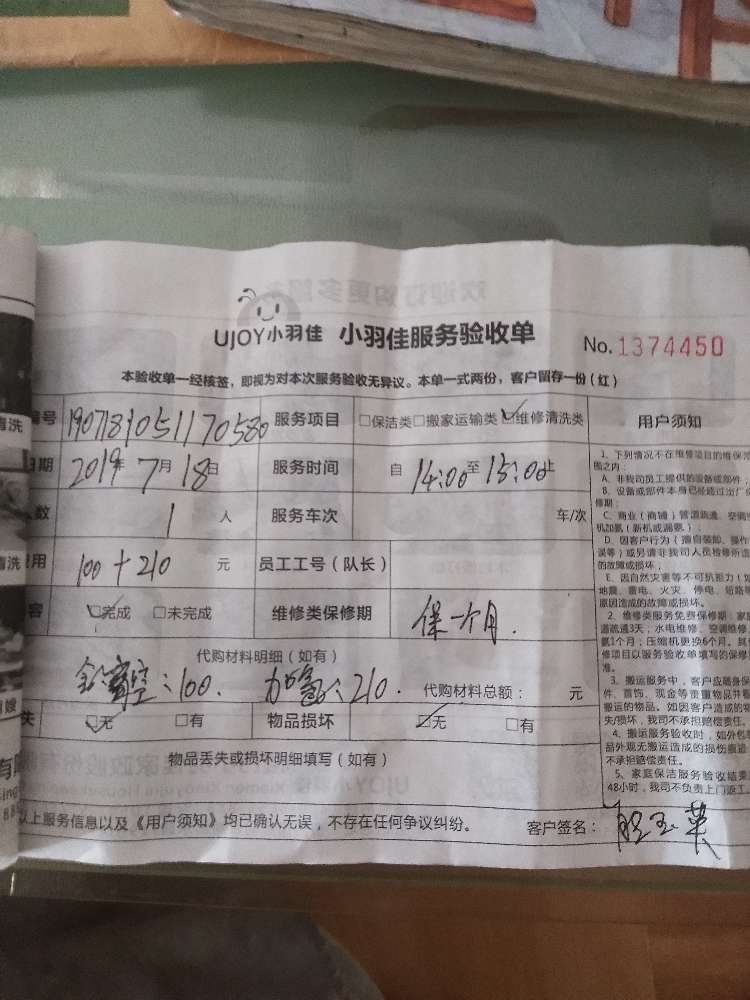 UJOY小羽佳 小羽佳服务验收单 No.1374450
本验收单一经核签，即视为对本次服务验收无异议。本单一式两份，客户留存一份(红)
编号 190718105117058o 服务项目 □保洁类□搬家运输类☑维修清洗类 用户须知
日期 2019年7月18日 服务时间 自14:00至15:00止
数 1人 服务车次 车/次
用 100+210 元 员工工号（队长）
容 ☑完成 □未完成 维修类保修期 保一个月.
代购材料明细（如有）
空:100. 加氟:210. 代购材料总额： 元
失 ☑无 □有 物品损坏 ☑无 □有
物品丢失或损坏明细填写（如有）
以上服务信息以及《用户须知》均已确认无误，不存在任何争议纠纷。 客户签名：
1、下列情况不在维修项目的维保范
围之内：
A、非我司员工提供的设备或部件；
B、设备或部件本身已经超过出厂保
修期；
C、商业（商铺）管道疏通、空调
机加氟（新机或漏氟）；
D、因客户行为（擅自装卸、操作
误等）或另请非我司人员检修所造
的故障或损坏；
E、因自然灾害等不可抗拒力！如
地震、雷电、火灾、停电、短路等
原因造成的故障或损坏。
2、维修类服务免费保修期：家庭
道疏通3天；水电维修、空调维修、
氟1个月；压缩机更换6个月。其
修项目以服务验收单填写的保修
准。
3、搬运服务中，客户应随身保
件、首饰、现金等贵重物品并
搬运的物品。如因客户造成的物
失/损坏，我司不承担赔偿责任。
4、搬运服务验收时，如外包装
品外观无搬运造成的损伤痕迹
不承担赔偿责任。
5、家庭保洁服务验收结束
48小时，我司不负责上门返工。
清洗
清洗